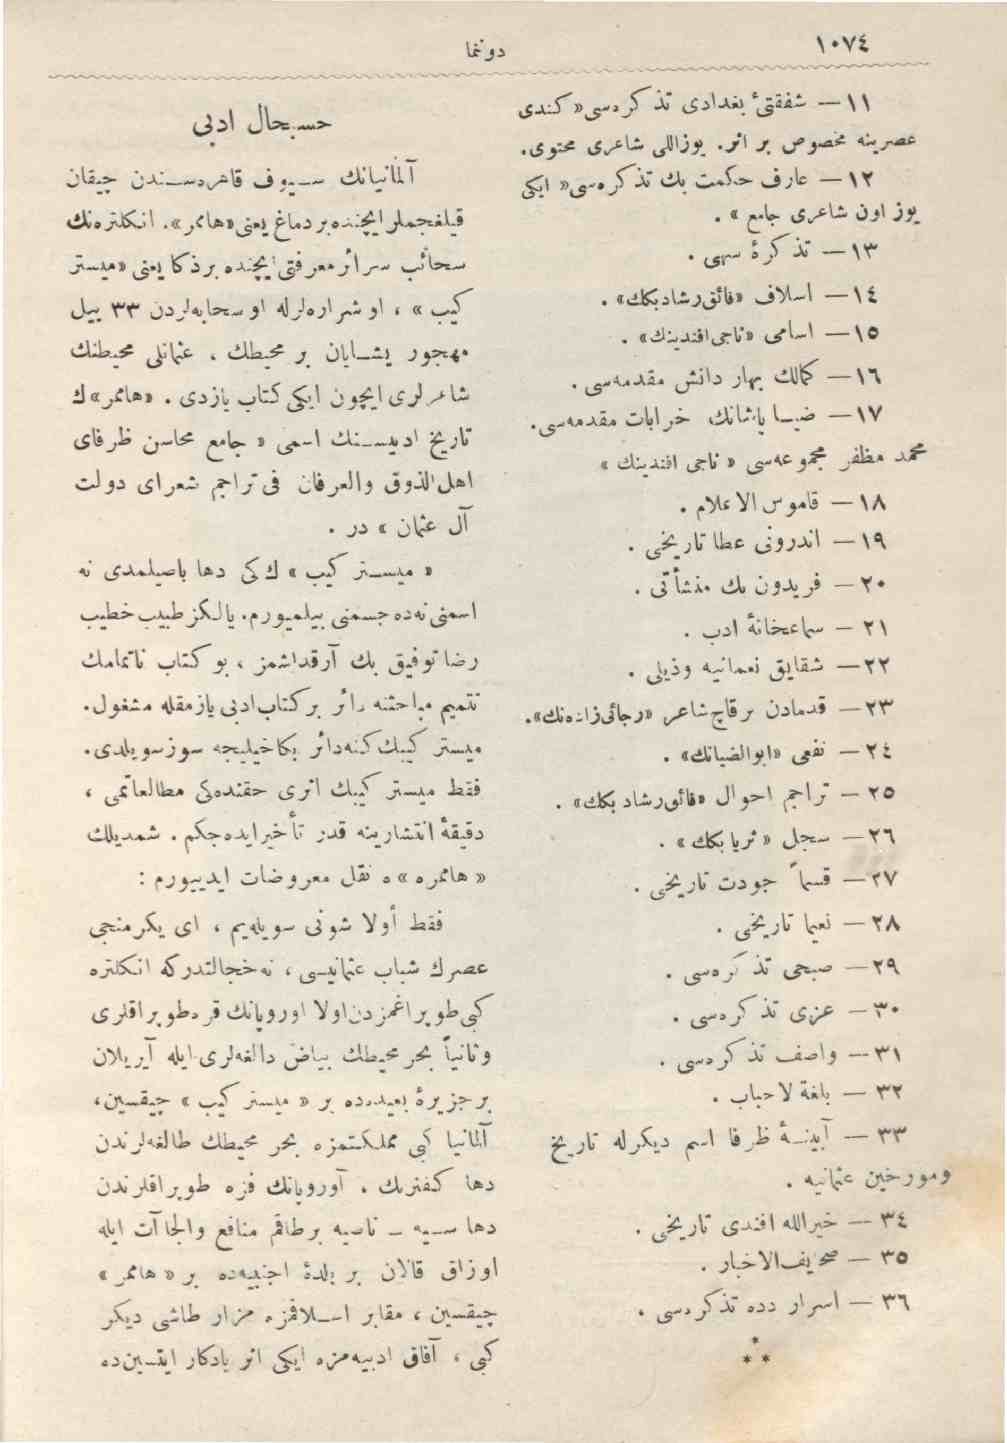 ١٠٧٤
دونما
١١ — شفقتیٔ بغدادی تذکره‌سی « کندی
عصرینه مخصوص بر اثر. یوزاللی شاعری محتوی.
١٢ — عارف حکمت بك تذکره‌سی « ایکی
یوز اون شاعری جامع » .
١٣ — تذکرهٔ سهی .
١٤ — اسلاف «فائق رشاد بكك» .
١٥ — اسامی «ناجی افندینك» .
١٦ — کمالك بهار دانش مقدمه‌سی .
١٧ — ضیا پاشانك خرابات مقدمه‌سی.
محمد مظفر مجموعه‌سی « ناجی افندینك »
١٨ — قاموس الاعلام .
١٩ — اندرونی عطا تاریخی .
٢٠ — فریدون بك منشأتی .
٢١ — سماعخانهٔ ادب .
٢٢ — شقایق نعمانیه وذیلی .
٢٣ — قدمادن برقاچ شاعر «رجائی‌زاده‌نك».
٢٤ — نفعی «ابوالضیانك» .
٢٥ — تراجم احوال «فائق رشاد بكك» .
٢٦ — سجل « ثریا بكك » .
٢٧ — قسماً جودت تاریخی .
٢٨ — نعیما تاریخی .
٢٩ — صبحی تذکره‌سی .
٣٠ — عزی تذکره‌سی .
٣١ — واصف تذکره‌سی .
٣٢ — بلغة لاحباب .
٣٣ — آیینهٔ ظرفا اسم دیکرله تاریخ
ومورخین عثمانیه .
٣٤ — خیرالله افندی تاریخی .
٣٥ — صحایف‌الاخبار .
٣٦ — اسرار دده تذکره‌سی .
*
* *
حسبحال ادبی
آلمانیانك سیوف قاهره‌سندن چیقان
قیلغجملر ایچنده بر دماغ یعنی «هاممر». انكلتره‌نك
سحائب سرائر معرفتی ایچنده برذکا یعنی «میستر
كیب » ، او شراره‌لرله او سحابه‌لردن ٣٣ ییل
مهجور یشایان بر محیطك ، عثمانلی محیطنك
شاعرلری ایچون ایکی کتاب یازدی . «هاممر»ك
تاریخ ادبیسنك اسمی « جامع محاسن ظرفای
اهل‌الذوق والعرفان فی تراجم شعرای دولت
آل عثمان » در .
« میستر كیب » ك‌كی دها باصیلمدی نه
اسمنی نه‌ده جسمنی بیلمیورم. یالكز طبیب خطیب
رضا توفیق بك آرقداشمز ، بو كتاب ناتمامك
تتمیم مباحثنه دائر بر كتاب ادبی یازمقله مشغول.
میستر كیبك كنه‌دائر بكا خیلیجه سوز سویلدی.
فقط میستر كیبك اثری حقنده‌كی مطالعاتمی ،
دقیقهٔ انتشارینه قدر تأخیر ایده‌جكم . شمدیلك
« هاممره »ه نقل معروضات ایدییورم :
فقط أولا شونی سویله‌یم ، ای یكرمنجی
عصرك شباب عثمانیسی ، نه خجالتدركه انكلتره
كبی طوپراغمزدن اولا اوروپانك قره‌طوپراقلری
وثانیاً بحر محیطك بیاض دالغه‌لری ایله آیریلان
بر جزیرهٔ بعیده‌ده بر « میستر كیب » چیقسین،
آلمانیا كبی مملكتمزه بحر محیطك طالغه‌لرندن
دها كفنرنك . آوروپانك قره طوپراقلرندن
دها سیه ـ ناصیه برطاقم منافع والجاآت ایله
اوزاق قالان بر بلدهٔ اجنبیه‌ده بر « هاممر »
چیقسین ، مقابر اسلافزه مزار طاشی دیكر
كبی ، آفاق ادبیه‌مزه ایكی اثر یادكار ایتسین‌ده